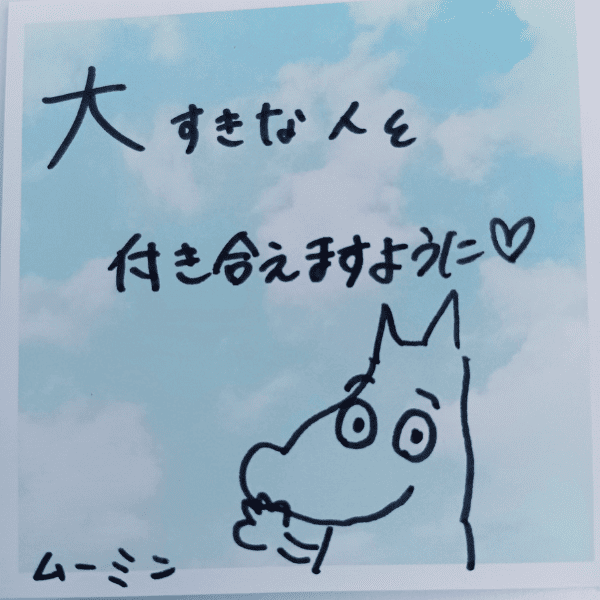 大すきな人と
付き合えますように♡
ムーミン